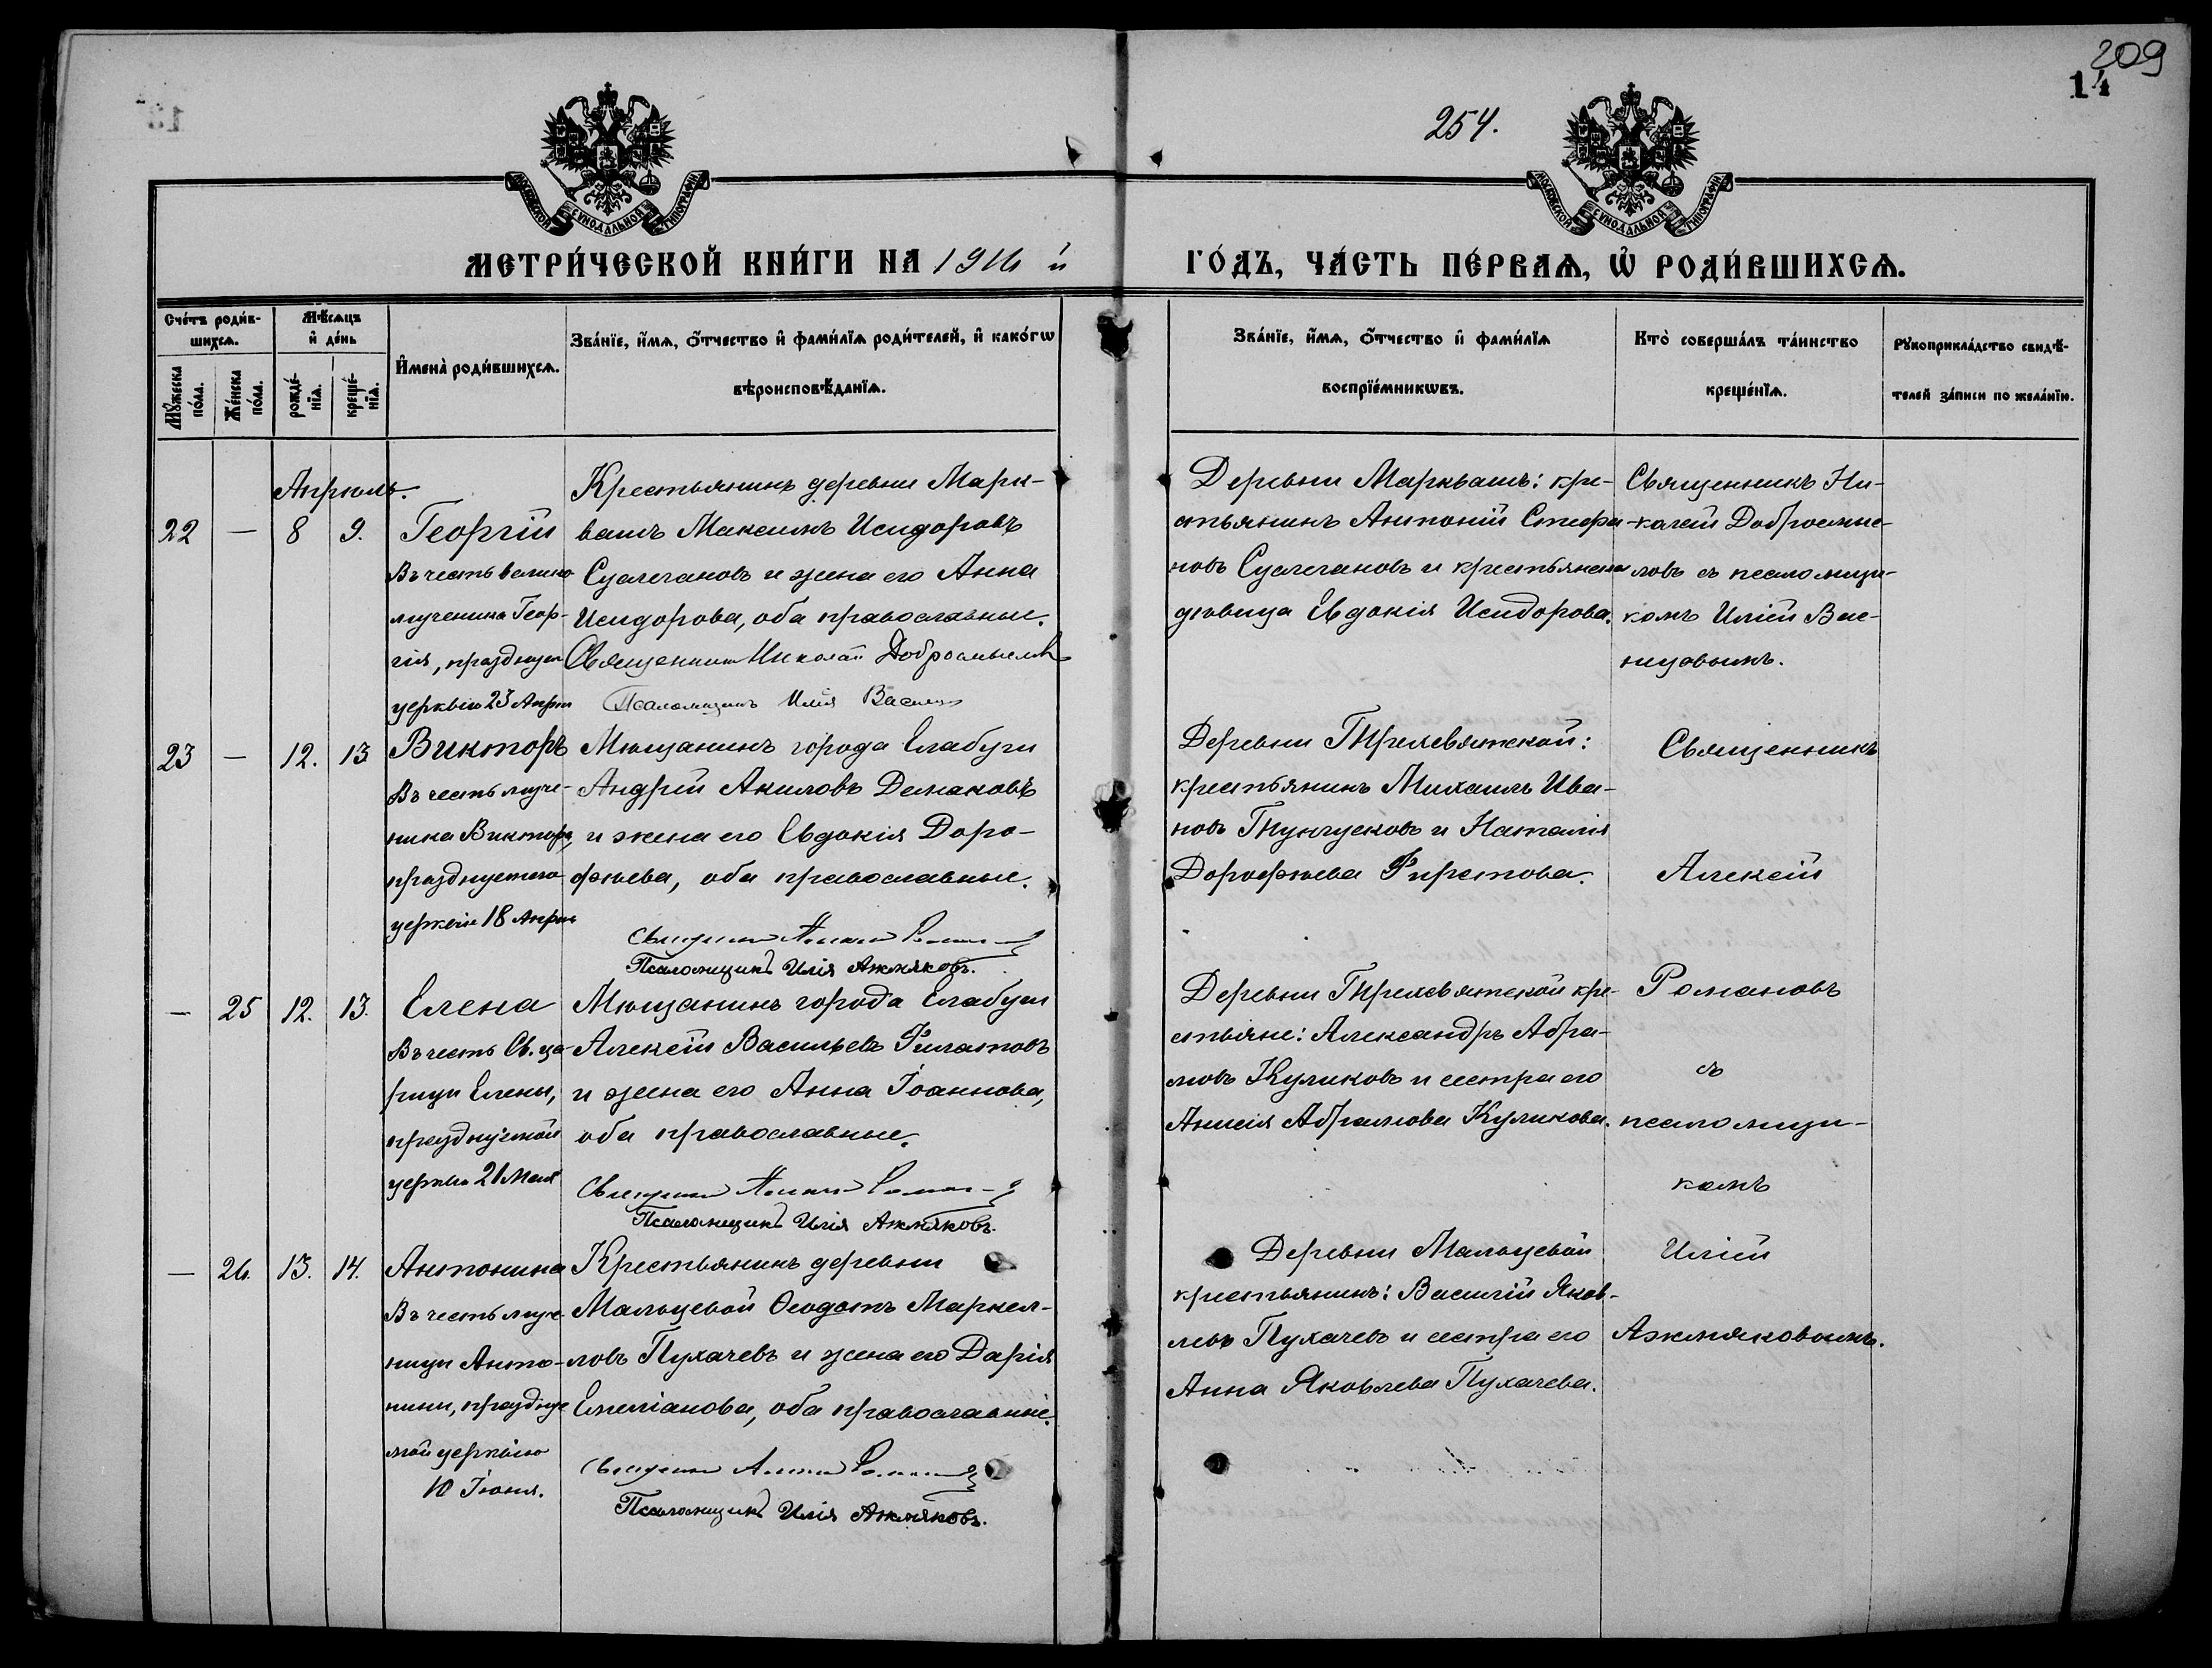 209
14
254.
МОСКОВСКОЙ СѴНОДАЛЬНОЙ ТИПОГРАФІИ
МОСКОВСКОЙ СѴНОДАЛЬНОЙ ТИПОГРАФІИ
МЕТРИ́ЧЕСКОЙ КНИ́ГИ НА 1916 й
ГО́ДЪ, ЧА́СТЬ ПЕ́РВАѦ, Ѡ РОДИ́ВШИХСѦ.
Сче́тъ роди́в-
шихсѧ.
Мѣ́сѧцъ
и҆ де́нь
Мꙋ́жеска
по́ла.
Же́нска
по́ла.
рожде́-
нїѧ.
креще́-
нїѧ.
И҆мена̀ роди́вшихсѧ.
Зва́нїе, и҆́мѧ, ѻ҆́тчество и҆ фами́лїѧ роди́телей, и҆ како́гѡ
вѣроисповѣ́данїѧ.
Зва́нїе, и҆́мѧ, ѻ҆́тчество и҆ фами́лїѧ
воспрїе́мникѡвъ.
Кто̀ соверша́лъ та́инство
креще́нїѧ.
Рꙋкоприкла́дство свидѣ́-
телей за́писи по жела́нїю.
Апрѣль.
22 — 8 9.
Георгій
Въ честь велико
мученика Геор-
гія, празднуем
церковію 23 Апрѣл
Крестьянинъ деревни Марк-
вашъ Максимъ Исидоровъ
Суалегановъ и жена его Анна
Исидорова, оба православные.
Священникъ Николай Добросмыслов
Псаломщикъ Илія Васнецо
Деревни Марквашъ: кре-
стьянинъ Антоній Стефа
новъ Суалегановъ и крестьянска
дѣвица Евдокія Исидорова.
Священникъ Ни-
колай Добросмыс-
ловъ съ псаломщи-
комъ Иліей Вас-
нецовымъ.
23 — 12. 13
Викторъ
Въ честь муче-
ника Виктора,
празднуемаго
церковію 18 Апрѣл
Мѣщанинъ города Елабуги
Андрей Акиловъ Демаковъ
и жена его Евдокія Доро-
фѣева, оба православные.
Священникъ Алексій Романовъ
Псаломщикъ Илія Ажмяковъ.
Деревни Трехсвятской:
крестьянинъ Михаилъ Ива-
новъ Тунгусковъ и Наталія
Дорофѣева Фирстова.
Священникъ
Алексій
Романовъ
съ
псаломщи-
комъ
Иліей
Ажмяковымъ.
— 25 12. 13.
Елена
Въ честь Св. ца-
рицы Елены,
празднуемой
церковію 21 Мая
Мѣщанинъ города Елабуги
Алексѣй Васильевъ Филатовъ
и жена его Анна Іоаннова,
оба православные.
Священникъ Алексій Романовъ
Псаломщикъ Илія Ажмяковъ.
Деревни Трехсвятской кре-
стьяне: Александръ Абра-
мовъ Куликовъ и сестра его
Анисія Абрамова Куликова.
— 26. 13. 14.
Антонина
Въ честь муче
ницы Анто-
нины, праздуе
мой церковію
10 Іюня.
Крестьянинъ деревни
Мальцевой Ѳеодотъ Маркел-
ловъ Пухачевъ и жена его Дарія
Емеліанова, оба православные.
Священникъ Алексій Романовъ
Псаломщикъ Илія Ажмяковъ.
Деревни Мальцевой
крестьянинъ: Василій Яков-
левъ Пухачевъ и сестра его
Анна Яковлева Пухачева.